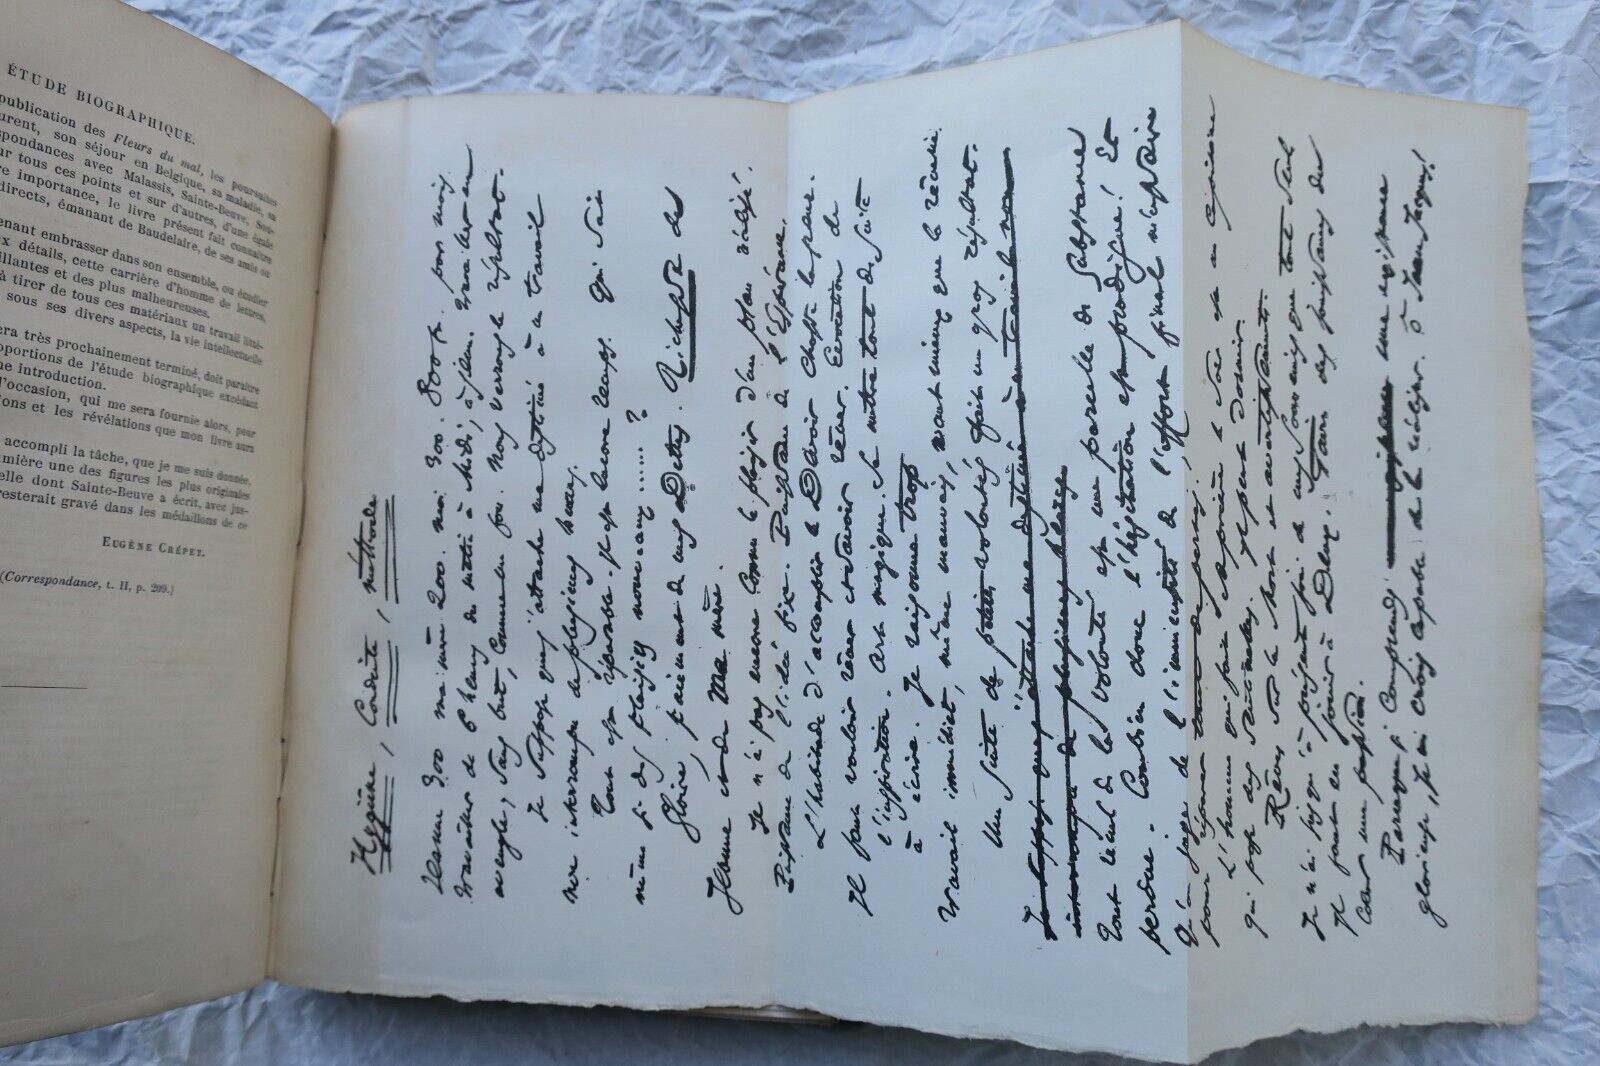 ÉTUDE BIOGRAPHIQUE.
publication des Fleurs du mal, les poursuites
son séjour en Belgique, sa maladie, sa
avec Malassis, Sainte-Beuve, Sou-
tous ces points et sur d'autres, d'une égale
importance, le livre présent fait connaître
directs, émanant de Baudelaire, de ses amis ou
embrasser dans son ensemble, ou étudier
détails, cette carrière d'homme de lettres,
et des plus malheureuses.
à tirer de tous ces matériaux un travail litté-
sous ses divers aspects, la vie intellectuelle
très prochainement terminé, doit paraître
de l'étude biographique excédant
introduction.
l'occasion, qui me sera fournie alors, pour
et les révélations que mon livre aura
accompli la tâche, que je me suis donnée,
une des figures les plus originales
dont Sainte-Beuve a écrit, avec jus-
resterait gravé dans les médaillons de ce
EUGÈNE CRÉPET.
(Correspondance, t. II, p. 209.)
Hygiène, Conduite, méthode
Jeanne 300 ma mère 200. moi 300. 800 fr. par mois.
travailler de 6 heures du matin à Midi, à jeun. Travailler en
aveugle, sans but, comme un fou. Nous verrons le résultat.
Je suppose que j'attache ma destinée à un travail
non interrompu de plusieurs heures.
Tout est réparable. Il est encore temps. Qui sait
même si des plaisirs nouveaux......?
Gloire, paiement de mes Dettes. Richesse de
Jeanne et de Ma mère.
Je n'ai pas encore connu le plaisir d'un plan réalisé.
Puissance de l'idée fixe. Puissance de l'Espérance.
L'habitude d'accomplir le Devoir chasse la peur.
Il faut vouloir rêver et savoir rêver. Evocation de
l'inspiration. Art magique. Se mettre tout de suite
à écrire. Je raisonne trop
Travail immédiat, même mauvais, vaut mieux que la rêverie.
Une suite de petites volontés fait un gros résultat.
Je suppose que j'attache ma destinée à un travail non
interrompu de plusieurs heures
Tout recul de la volonté est une parcelle de substance
perdue. Combien donc l'hésitation est prodigue! Et
qu'on juge de l'immensité de l'effort final nécessaire
pour réparer tant de pertes!
L'homme qui fait sa prière le soir est un Capitaine
qui pose des sentinelles. Il peut dormir.
Rêves sur la Mort et avertissements.
Je n'ai jusqu'à présent joui de mes souvenirs que tout seul
Il faut en jouir à Deux. Faire des jouissances du
Cœur une passion.
Parceque je comprends une existence
glorieuse, je me crois capable de la réaliser. ô Jean-Jacques!